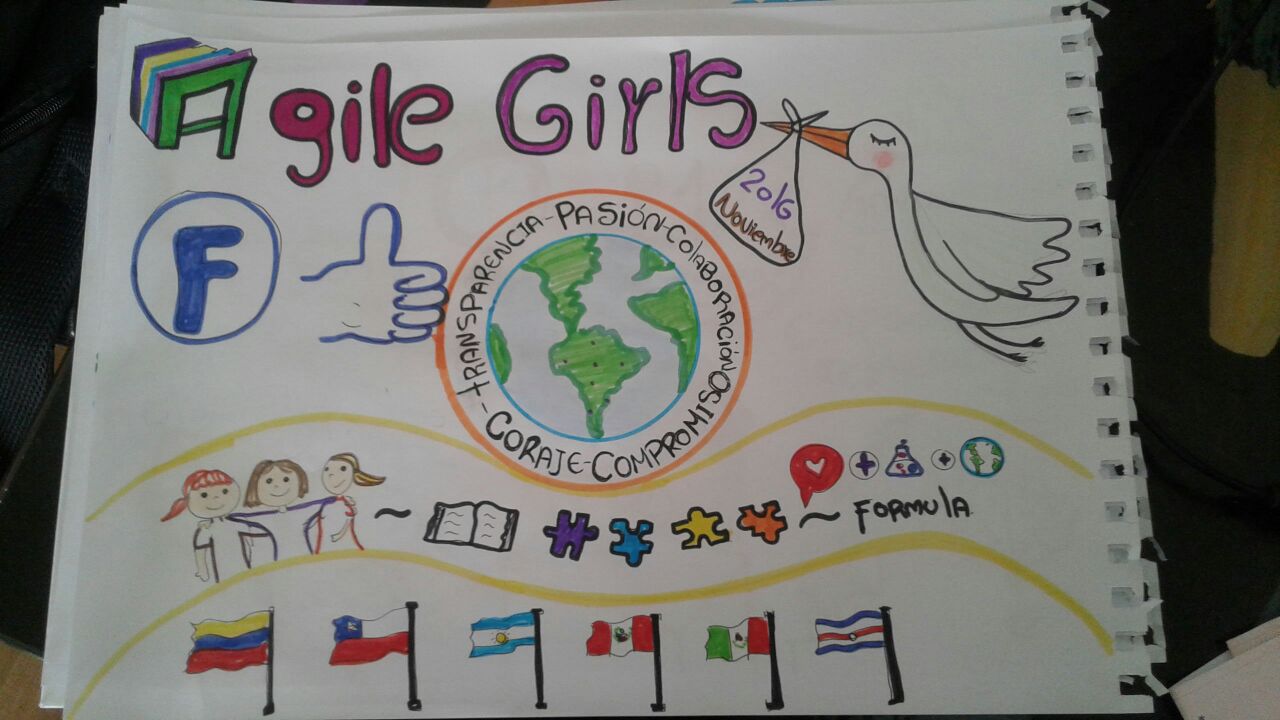 Agile Girls
2016
Noviembre
F
TRANSPARENCIA-PASIÓN-COLABORACIÓN
CORAJE-COMPROMISO
~ ~ FORMULA